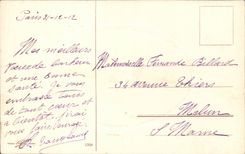 Paris 31-12-12
Mes meilleurs
de bonheur
et une bonne
santé. Je vous
embrasse
de tout cœur et
à bientôt.
vous faire
Mademoiselle Fernande Bellard
34 avenue Thiers
Melun
S. Marne